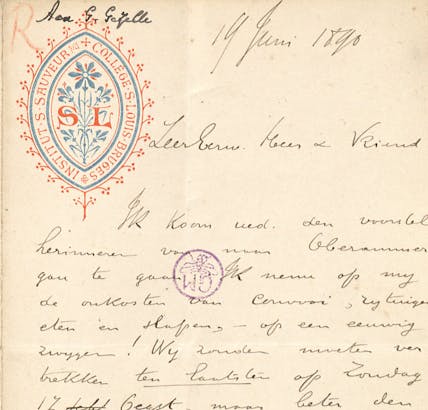 R
Aan G. Gezelle
19 Juni 1890
INSTITUT S. SAUVEUR COLLÈGE S. LOUIS BRUGES
S L
Zeer Eerw. Heer & Vriend
Ik koom ued. den voorstel
herinneren van naar Oberammer
gau te gaan. Ik neme op my
GM
de onkosten van convooi, rytuigen
eten en slapen, — op een eeuwig
zwygen! Wy zouden moeten ver
trekken ten laatsten op Zondag
17 Oegst, maar beter den